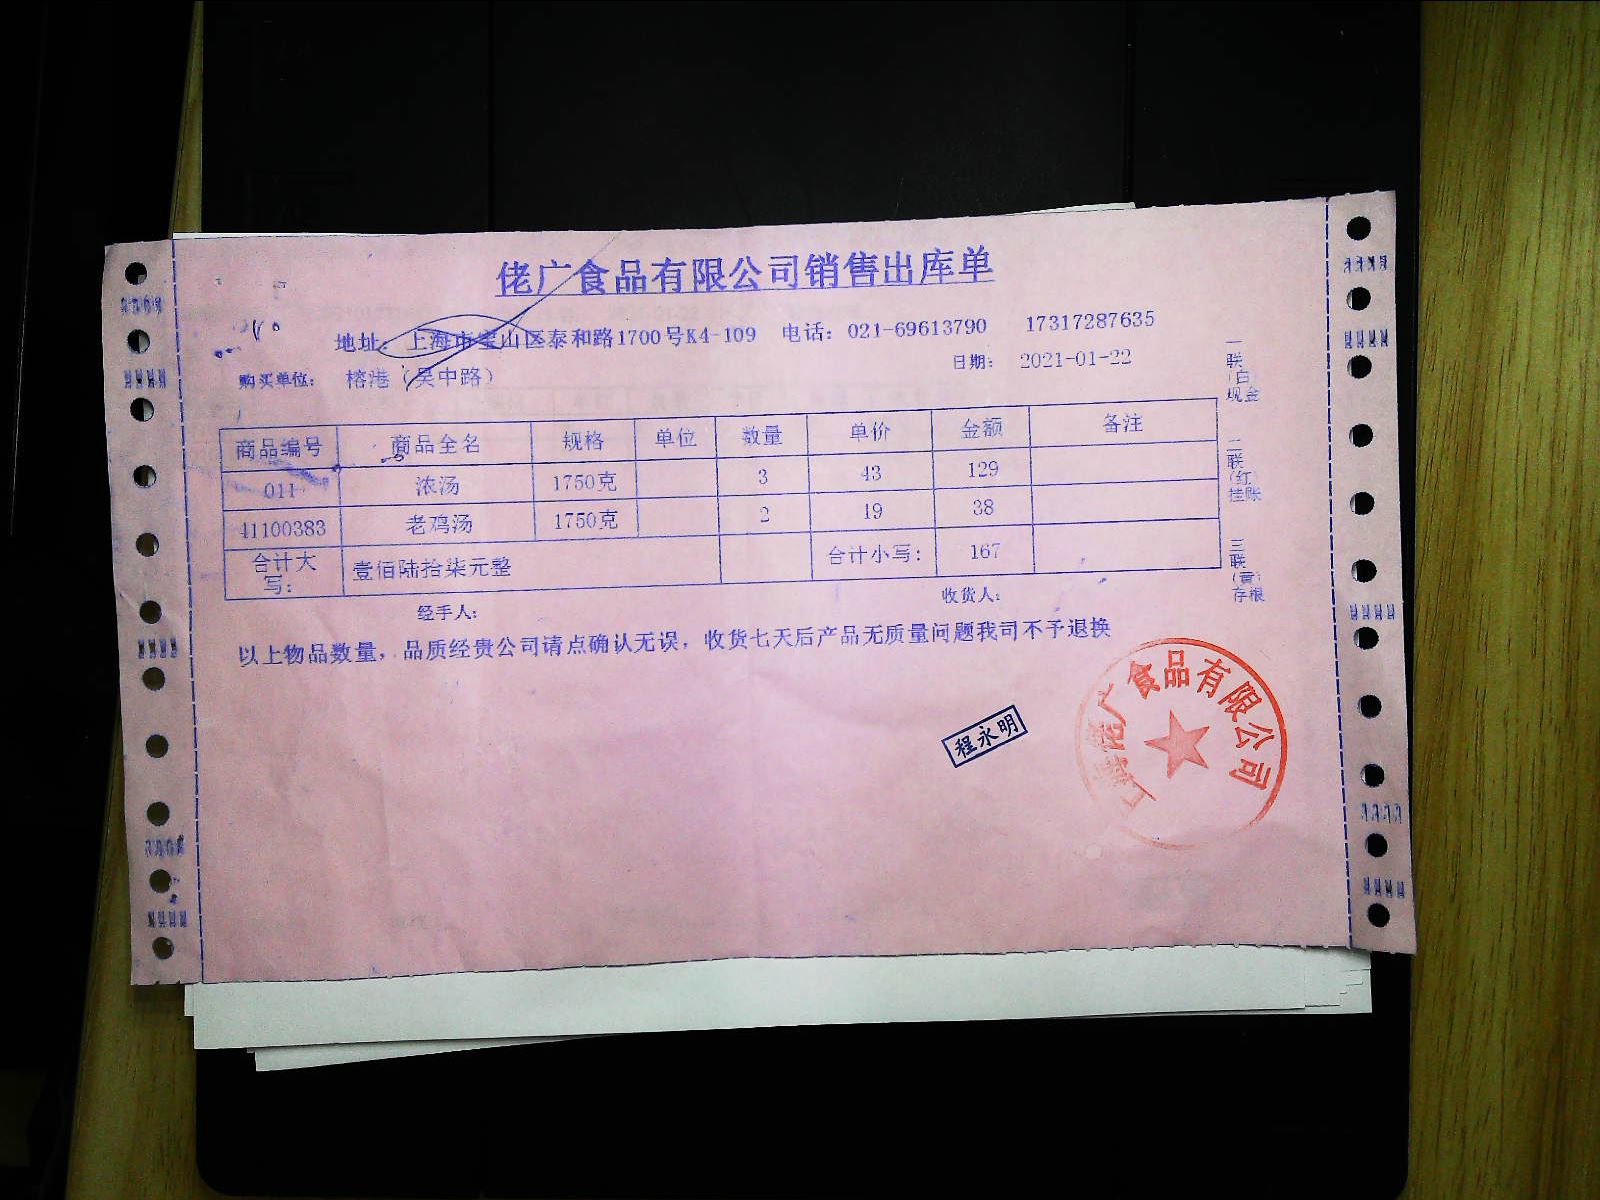 佬广食品有限公司销售出库单
地址：上海市宝山区泰和路1700号K4-109 电话：021-69613790 17317287635
购买单位：榕港（吴中路） 日期：2021-01-22
商品编号 商品全名 规格 单位 数量 单价 金额 备注
011 浓汤 1750克 3 43 129
41100383 老鸡汤 1750克 2 19 38
合计大写： 壹佰陆拾柒元整 合计小写： 167
经手人： 收货人：
以上物品数量，品质经贵公司请点确认无误，收货七天后产品无质量问题我司不予退换
一联（白）现金
二联（红）挂账
三联（黄）存根
程永明
上海佬广食品有限公司